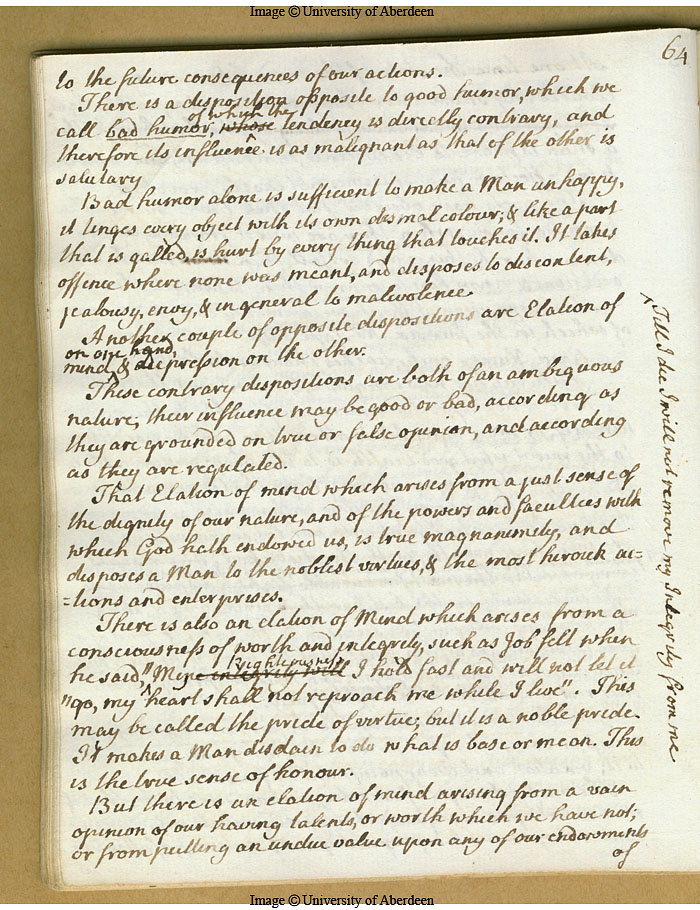 Image © University of Aberdeen
64
to the future consequences of our actions.
There is a disposition opposite to good humor, which we
of which the
call bad humor, whose tendency is directly contrary, and
therefore its influence is as malignant as that of the other is
salutary
Bad humor alone is sufficient to make a Man unhappy,
it tinges every object with its own dismal colour; & like a part
that is galled, is hurt by every thing that touches it. It takes
offence where none was meant, and disposes to discontent,
jealousy, envy, & in general to malevolence.
Another couple of opposite dispositions are Elation of
on one hand,
mind, & depression on the other.
These contrary dispositions are both of an ambiguous
nature; their influence may be good or bad, according as
they are grounded on true or false opinion, and according
as they are regulated.
That Elation of mind which arises from a just sense of
the dignity of our nature, and of the powers and faculties with
which God hath endowed us, is true magnanimity, and
disposes a Man to the noblest virtues, & the most heroick ac=
=tions and enterprises.
There is also an elation of Mind which arises from a
consciousness of worth and integrity, such as Job felt when
righteousness
he said, "Mine integrity will I hold fast and will not let it
"go, my heart shall not reproach me while I live". This
may be called the pride of virtue; but it is a noble pride.
It makes a Man disdain to do what is base or mean. This
is the true sense of honour.
But there is an elation of mind arising from a vain
opinion of our having talents, or worth which we have not;
or from putting an undue value upon any of our endowments
of
Till I die I will not remove my Integrity from me
Image © University of Aberdeen